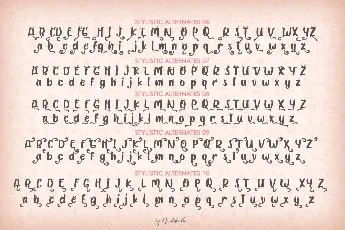 STYLISTIC ALTERNATES 06
A B C D E F G H I J K L M N O P Q R S T U V W X Y Z
a b c d e f g h i j k l m n o p q r s t u v w x y z
STYLISTIC ALTERNATES 07
A B C D E F G H I J K L M N O P Q R S T U V W X Y Z
a b c d e f g h i j k l m n o p q r s t u v w x y z
STYLISTIC ALTERNATES 08
A B C D E F G H I J K L M N O P Q R S T U V W X Y Z
a b c d e f g h i j k l m n o p q r s t u v w x y z
STYLISTIC ALTERNATES 09
A B C D E F G H I J K L M N O P Q R S T U V W X Y Z
a b c d e f g h i j k l m n o p q r s t u v w x y z
STYLISTIC ALTERNATES 10
A B C D E F G H I J K L M N O P Q R S T U V W X Y Z
a b c d e f g h i j k l m n o p q r s t u v w x y z